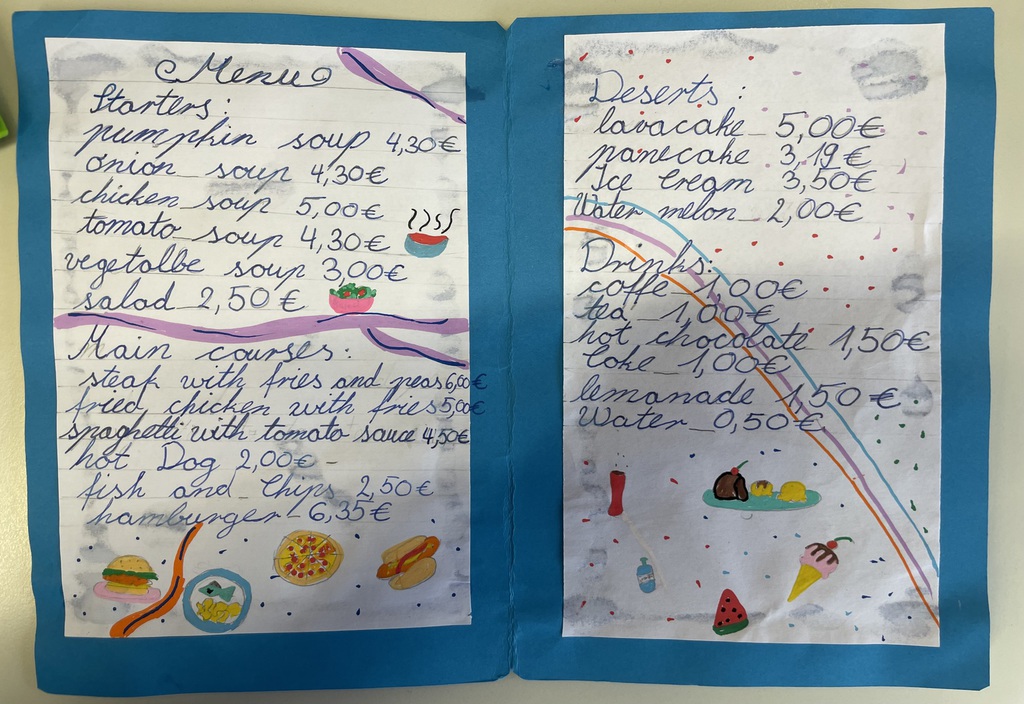 Menu
Starters:
pumpkin soup 4,30€
onion soup 4,30€
chicken soup 5,00€
tomato soup 4,30€
vegetalbe soup 3,00€
salad 2,50€
Main courses:
steak with fries and peas 6,00€
fried chicken with fries 5,00€
spaghetti with tomato sauce 4,50€
hot Dog 2,00€
fish and Chips 2,50€
hamburger 6,35€
Deserts:
lavacake 5,00€
panecake 3,19€
Ice Cream 3,50€
Water melon 2,00€
Drinks:
coffe 1,00€
tea 1,00€
hot chocolate 1,50€
Coke 1,00€
lemonade 1,50€
Water 0,50€